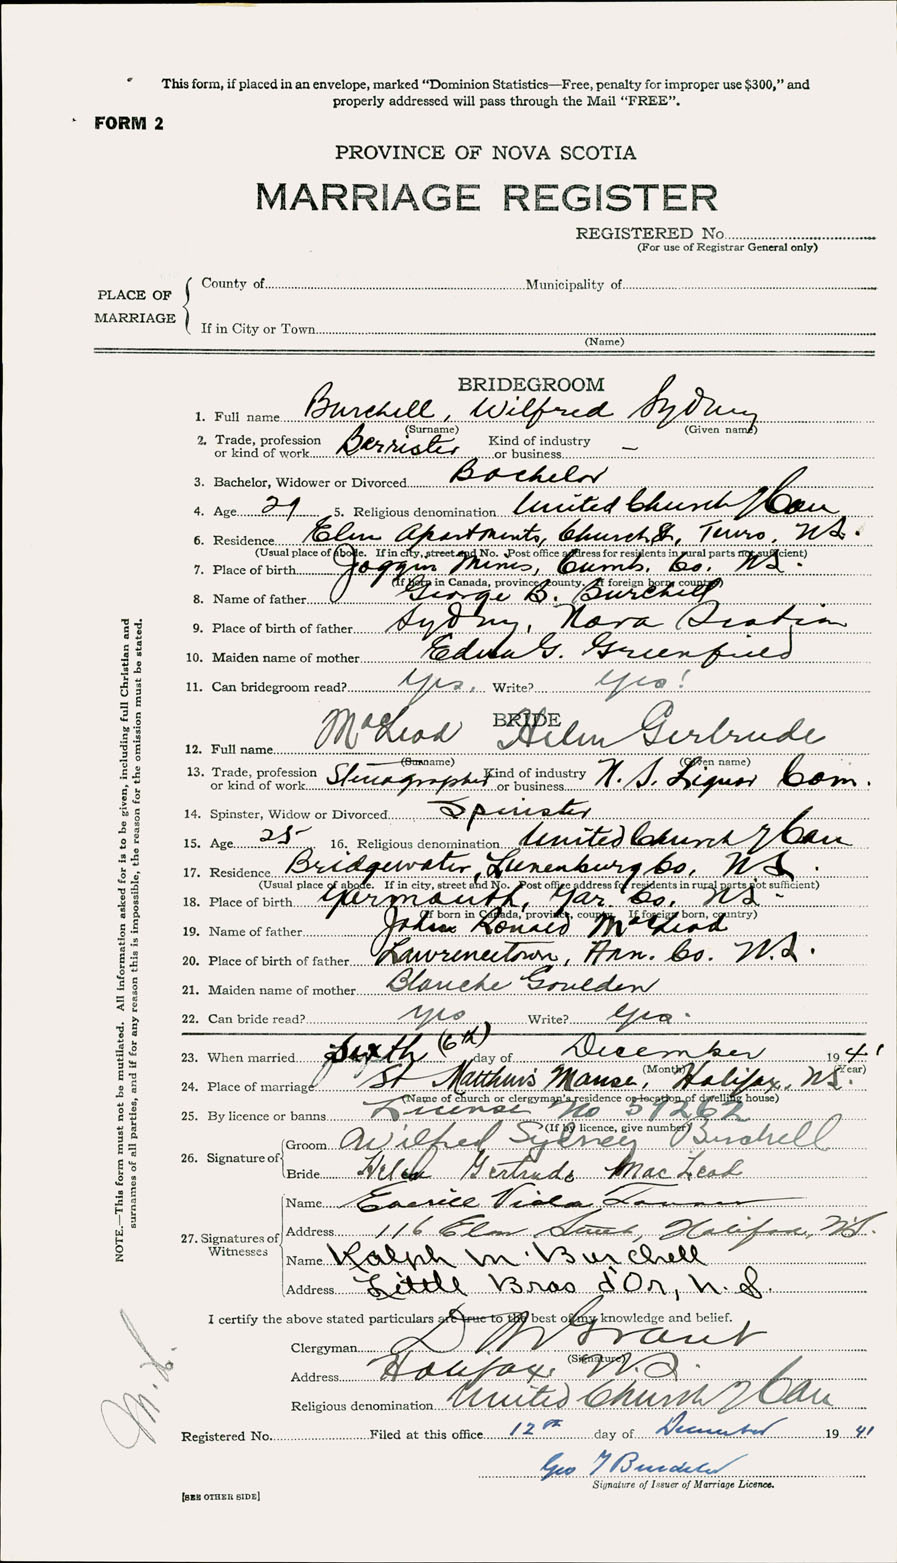 This form, if placed in an envelope, marked "Dominion Statistics—Free, penalty for improper use $300," and
properly addressed will pass through the Mail "FREE".
FORM 2
PROVINCE OF NOVA SCOTIA
MARRIAGE REGISTER
REGISTERED No.
(For use of Registrar General only)
PLACE OF MARRIAGE
County of Municipality of
If in City or Town
(Name)
BRIDEGROOM
1. Full name Burchell, Wilfred Sydney
(Surname) (Given name)
2. Trade, profession or kind of work Barrister Kind of industry or business —
3. Bachelor, Widower or Divorced Bachelor
4. Age 29 5. Religious denomination United Church of Can
6. Residence Elm Apartments, Church St, Truro, N.S.
(Usual place of abode. If in city, street and No. Post office address for residents in rural parts not sufficient)
7. Place of birth Joggin Mines, Cumb. Co. N.S.
(If born in Canada, province, county. If foreign born, country)
8. Name of father George B. Burchell
9. Place of birth of father Sydney, Nova Scotia
10. Maiden name of mother Edna G. Greenfield
11. Can bridegroom read? Yes. Write? Yes!
BRIDE
12. Full name MacLeod Helen Gertrude
(Surname) (Given name)
13. Trade, profession or kind of work Stenographer Kind of industry or business N.S. Liquor Com.
14. Spinster, Widow or Divorced Spinster
15. Age 25 16. Religious denomination United Church of Can
17. Residence Bridgewater, Lunenburg Co, N.S.
(Usual place of abode. If in city, street and No. Post office address for residents in rural parts not sufficient)
18. Place of birth Yarmouth, Yar. Co. N.S.
(If born in Canada, province, county. If foreign born, country)
19. Name of father John Ronald MacLeod
20. Place of birth of father Lawrencetown, Ann. Co. N.S.
21. Maiden name of mother Blanche Goulden
22. Can bride read? Yes Write? Yes.
23. When married Sixth (6th) day of December 1941
(Month) (Year)
24. Place of marriage St Matthew's Manse, Halifax, N.S.
(Name of church or clergyman's residence or location of dwelling house)
25. By licence or banns License No 59262
(If by licence, give number)
26. Signature of
Groom Wilfred Sydney Burchell
Bride Helen Gertrude MacLeod
27. Signatures of Witnesses
Name Viola
Address 116 Elm Street, Halifax, N.S.
Name Ralph M. Burchell
Address Little Bras d'Or, N.S.
I certify the above stated particulars are true to the best of my knowledge and belief.
Clergyman D W Grant
(Signature)
Address Halifax N.S.
Religious denomination United Church of Can
Registered No. Filed at this office 12th day of December 1941
Geo
Signature of Issuer of Marriage Licence.
[SEE OTHER SIDE]
NOTE.—This form must not be mutilated. All information asked for is to be given, including full Christian and
surnames of all parties, and if for any reason this is impossible, the reason for the omission must be stated.